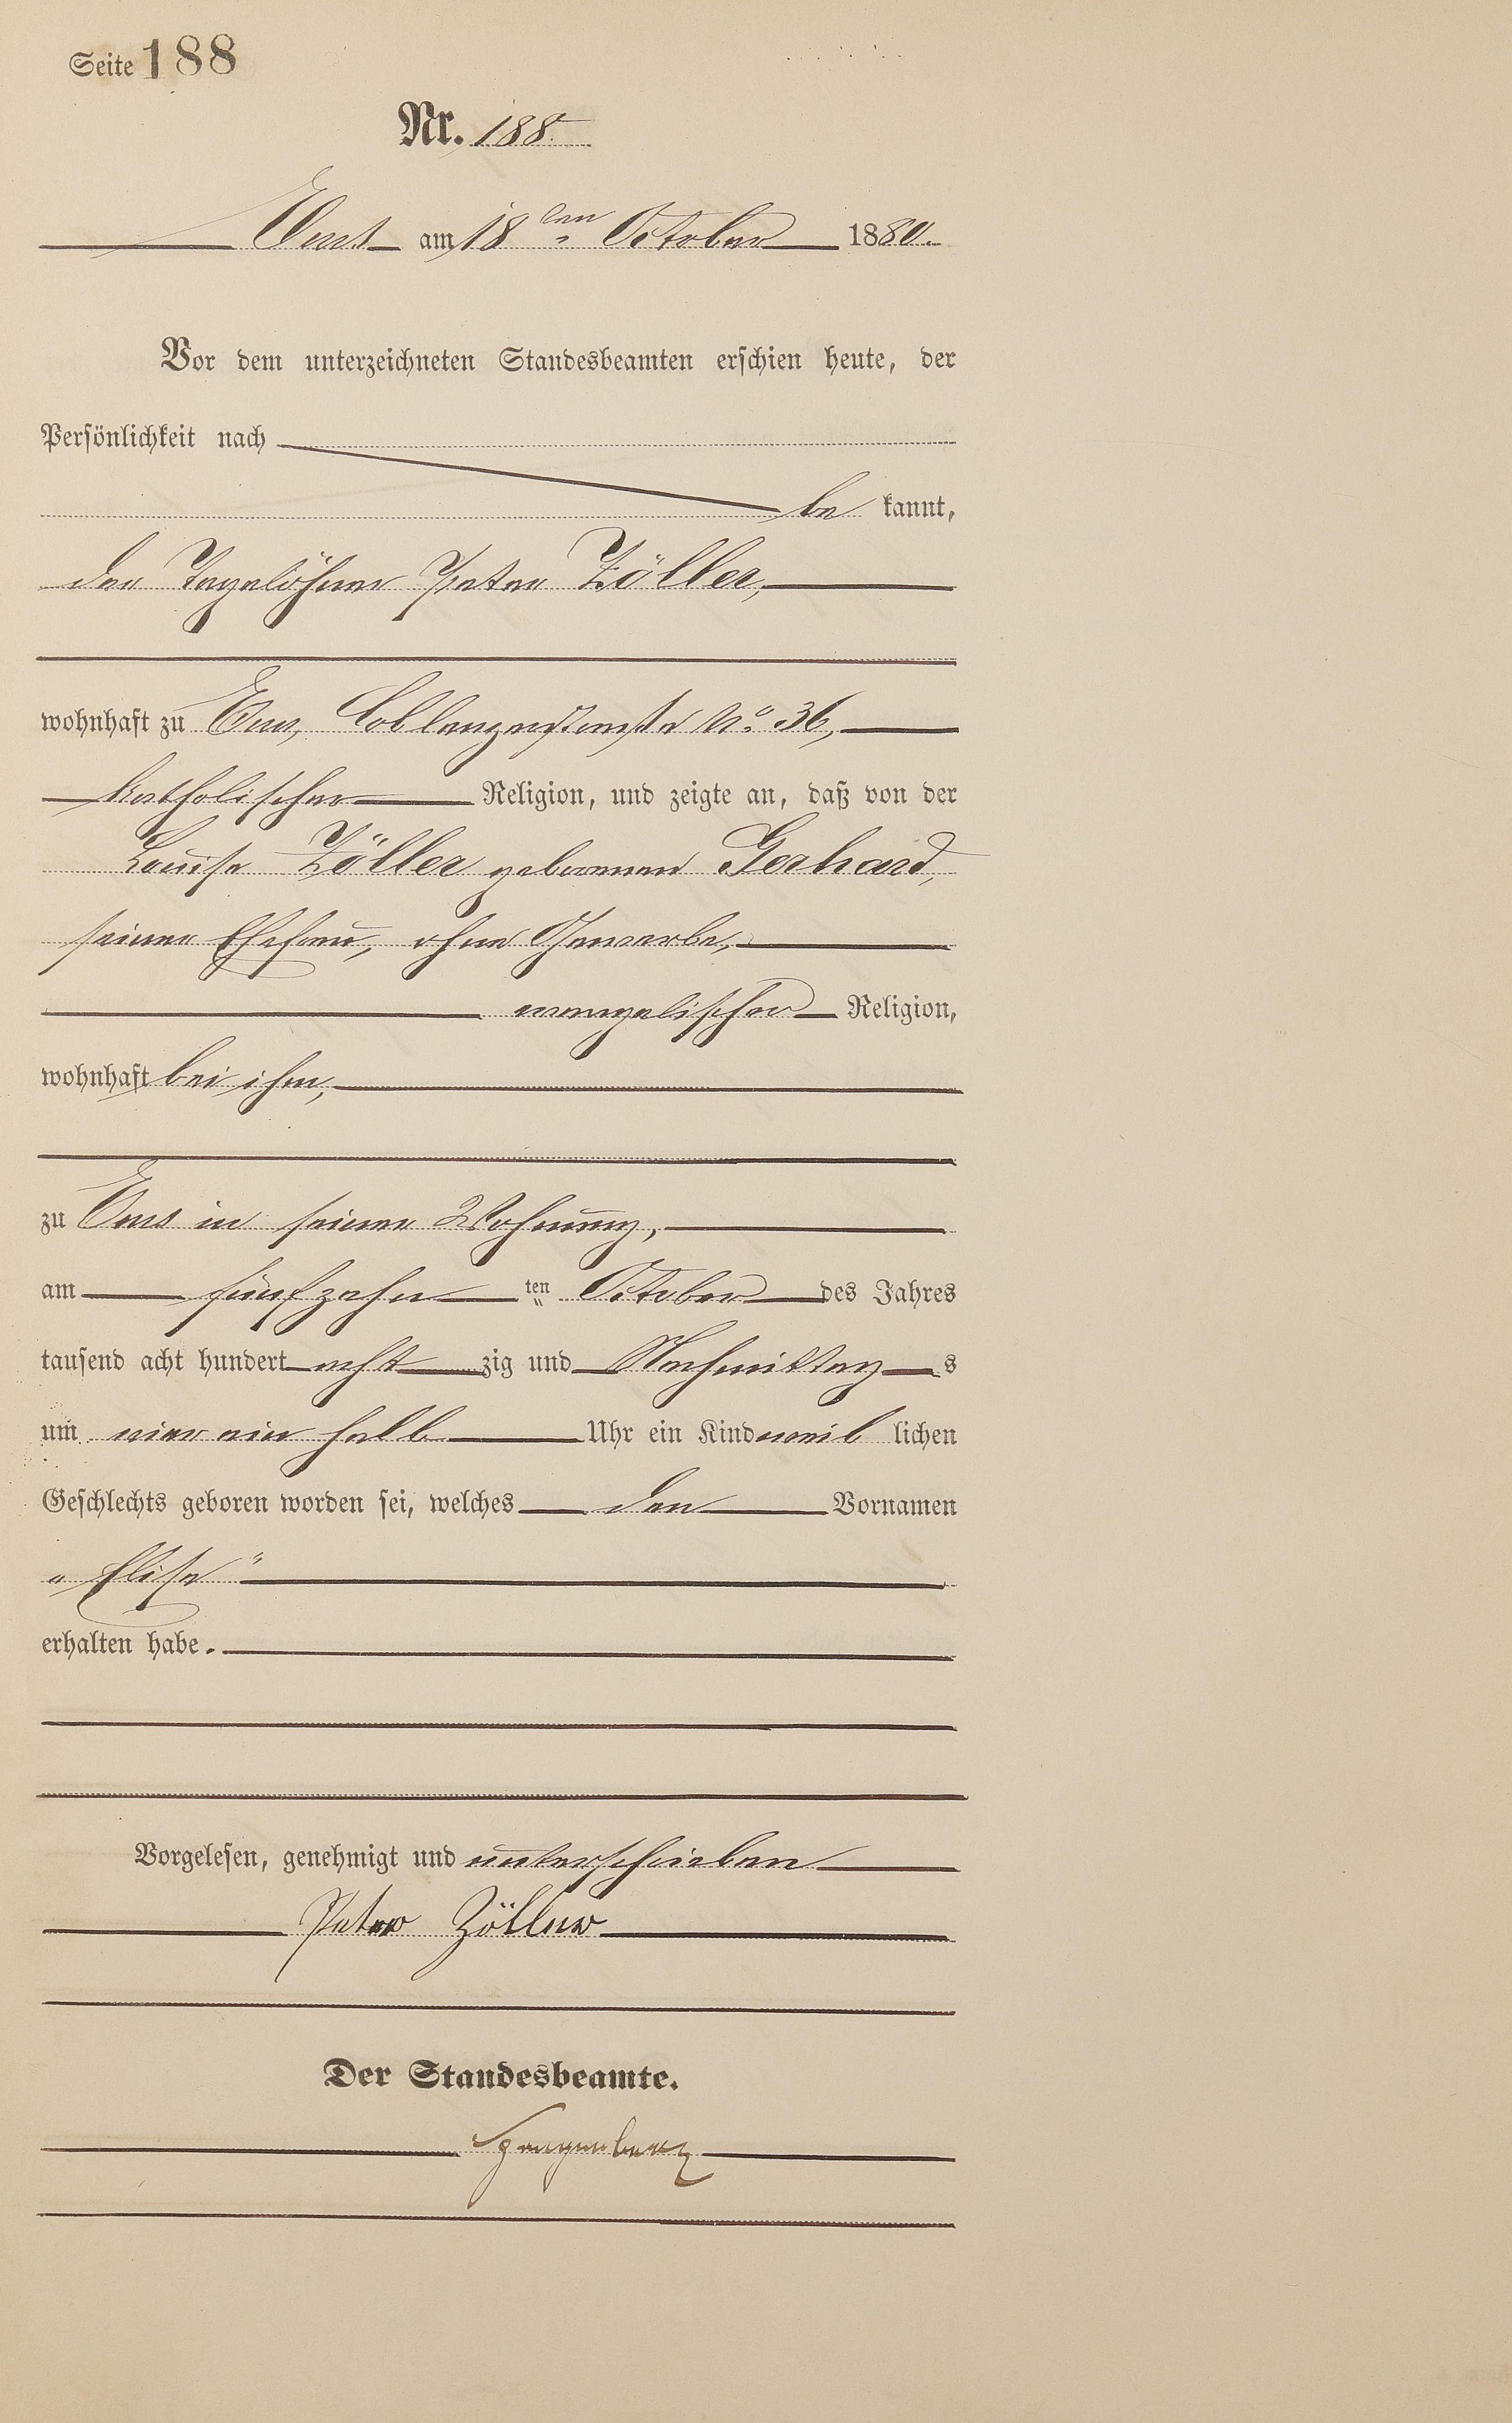 Seite 188
Nr. 188.
Ems am 18ten October 1880.
Vor dem unterzeichneten Standesbeamten erschien heute, der
Persönlichkeit nach
be kannt,
der Tagelöhner Peter Zöller,
wohnhaft zu Ems, Coblenzerstraße No. 36,
katholischer Religion, und zeigte an, daß von der
Louise Zöller geborenen Gerhard,
seiner Ehefrau, ohne Gewerbe,
evangelischer Religion,
wohnhaft bei ihm,
zu Ems in seiner Wohnung,
am fünfzehn ten October des Jahres
tausend acht hundert acht zig und Nachmittag s
um vier ein halb Uhr ein Kind weib lichen
Geschlechts geboren worden sei, welches den Vornamen
„Elise“
erhalten habe.
Vorgelesen, genehmigt und unterschrieben
Peter Zöller
Der Standesbeamte.
Spangenberg